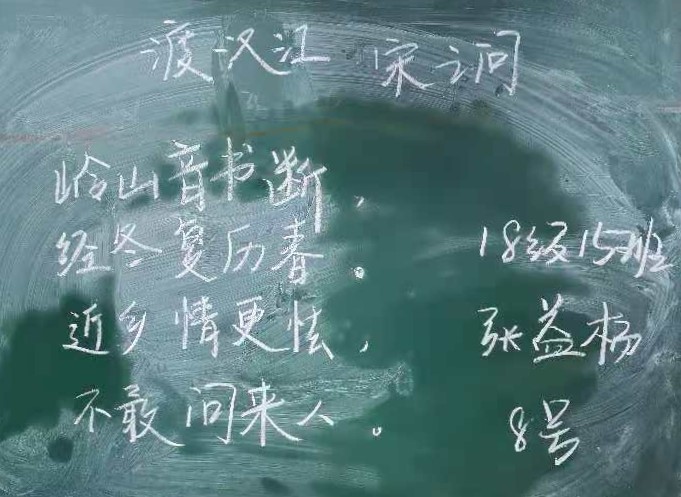 渡汉江 宋之问
岭山音书断，
经冬复历春。
近乡情更怯，
不敢问来人。
18级15班
张益杨
8号